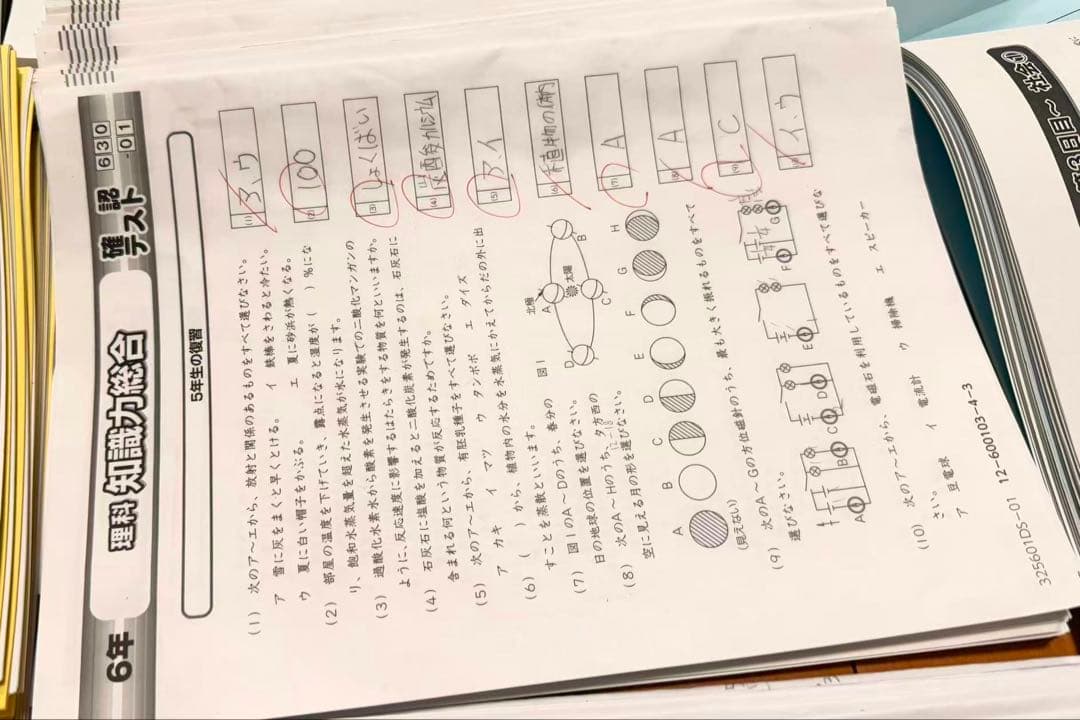 6年
理科 知識力総合
確認テスト
630
-01
5年生の復習
(1) 次のア～エから、放射と関係のあるものをすべて選びなさい。
ア 雪に灰をまくと早くとける。 イ 鉄棒をさわると冷たい。
ウ 夏に白い帽子をかぶる。 エ 夏に砂浜が熱くなる。
(2) 部屋の温度を下げていき、露点になると湿度が( )%にな
り、飽和水蒸気量を超えた水蒸気が水になります。
(3) 過酸化水素水から酸素を発生させる実験での二酸化マンガンの
ように、反応速度に影響するはたらきをする物質を何といいますか。
(4) 石灰石に塩酸を加えると二酸化炭素が発生するのは、石灰石に
含まれる何という物質が反応するためですか。
(5) 次のア～エから、有胚乳種子をすべて選びなさい。
ア カキ イ マツ ウ タンポポ エ ダイズ
(6) ( )から、植物内の水分を水蒸気にかえてからだの外に出
すことを蒸散といいます。
(7) 図1のA～Dのうち、春分の
日の地球の位置を選びなさい。
(8) 次のA～Hのうち、夕方西の
空に見える月の形を選びなさい。
図1
北極
A
太陽
B
C
D
A B C D E F G H
(見えない)
(9) 次のA～Gの方位磁針のうち、最も大きく振れるものをすべて
選びなさい。
A B C D E F G
(10) 次のア～エから、電磁石を利用しているものをすべて選びな
さい。
ア 豆電球 イ 電流計 ウ 掃除機 エ スピーカー
(1) ア、ウ
(2) 100
(3) しょくばい
(4) 炭酸カルシウム
(5) ア、イ
(6)
(7) A
(8) A
(9) C
(10) イ、ウ
325601DS-01 12-600103-4-3